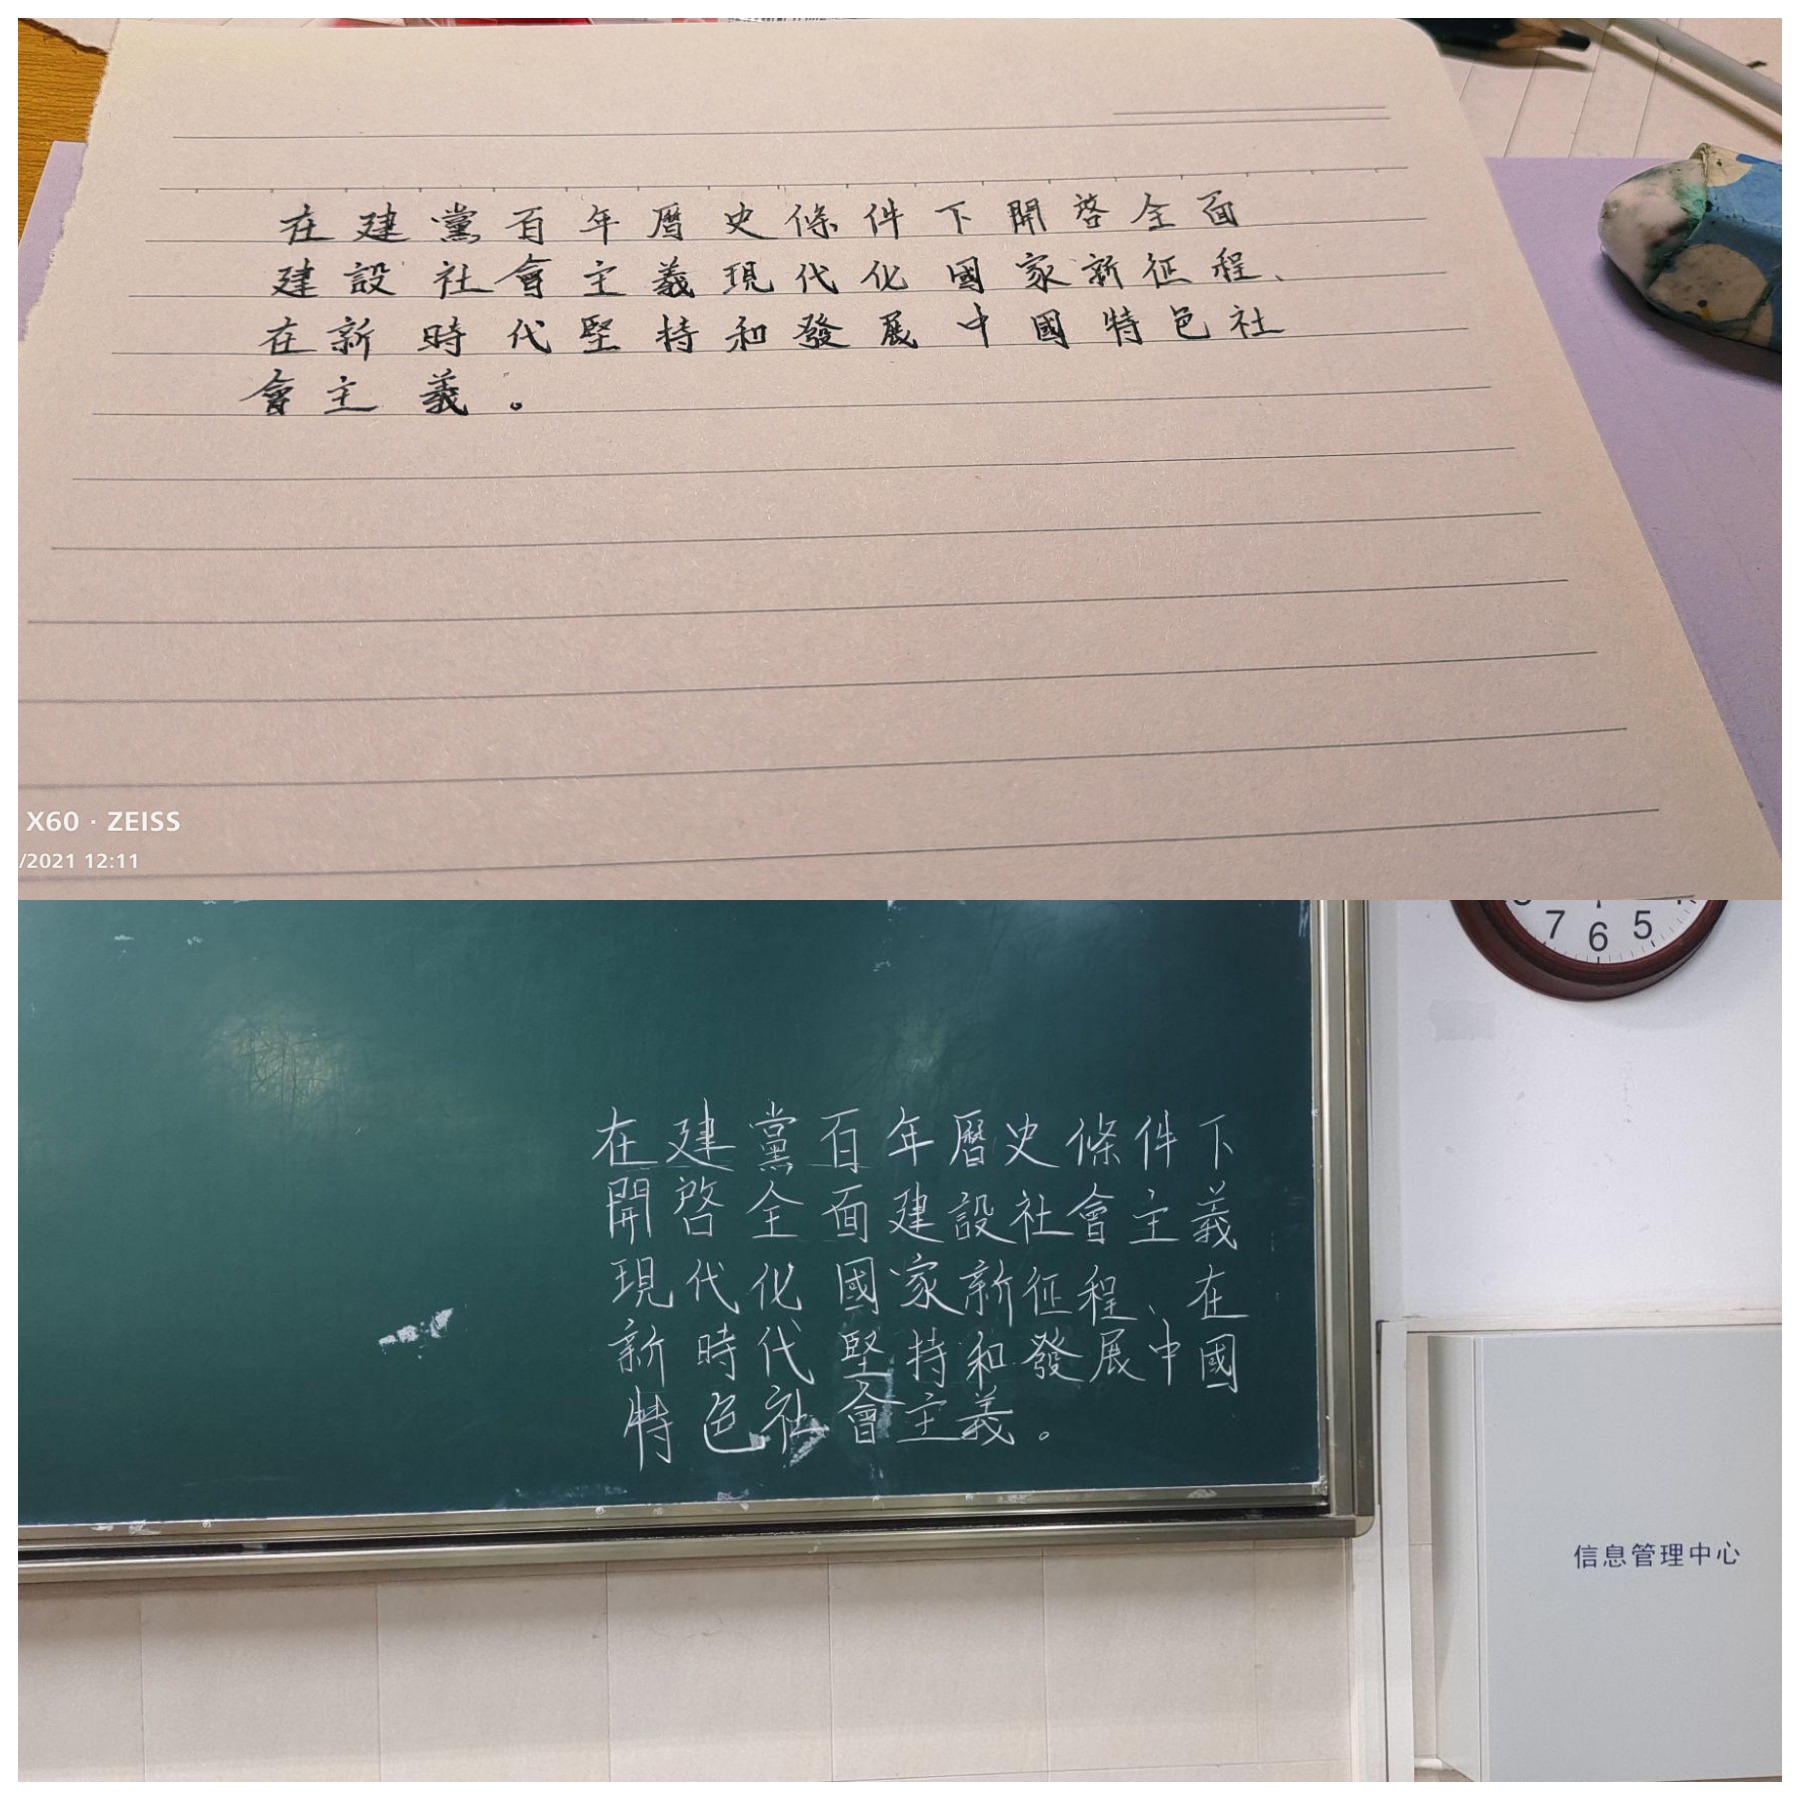 在建黨百年曆史條件下開啓全面
建設社會主義現代化國家新征程、
在新時代堅持和發展中國特色社
會主義。
X60 · ZEISS
/2021 12:11
7 6 5
在建黨百年曆史條件下
開啓全面建設社會主義
現代化國家新征程、在
新時代堅持和發展中國
特色社會主義。
信息管理中心